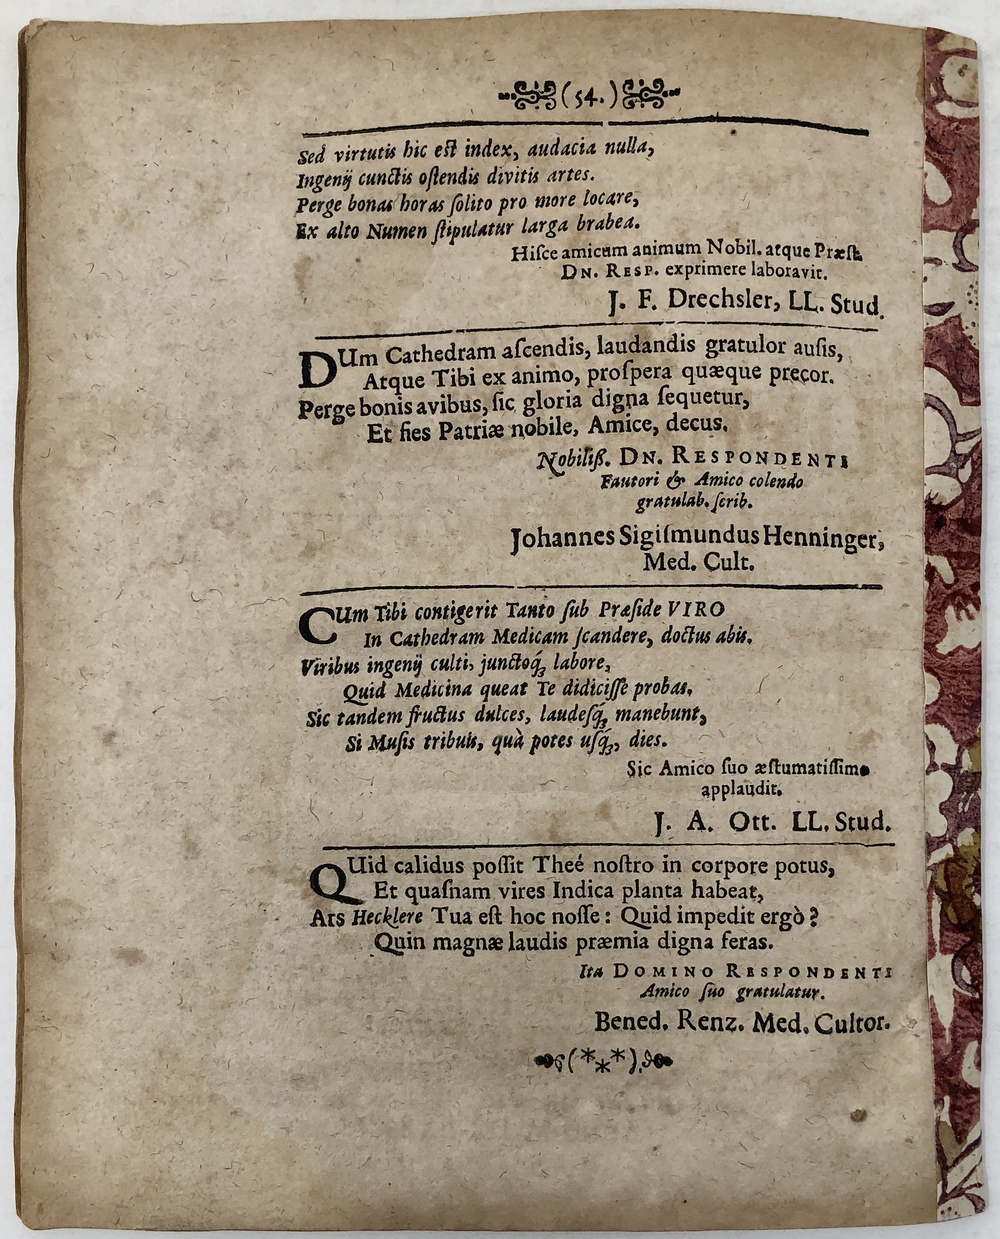 (54.)
Sed virtutis hic est index, audacia nulla,
Ingenij cunctis oſtendis divitis artes.
Perge bonas horas ſolito pro more locare,
Ex alto Numen ſtipulatur larga brabea.
Hiſce amicum animum Nobil. atque Præſt.
DN. RESP. exprimere laboravit.
J. F. Drechsler, LL. Stud.
DUm Cathedram aſcendis, laudandis gratulor auſis,
Atque Tibi ex animo, proſpera quæque precor.
Perge bonis avibus, ſic gloria digna ſequetur,
Et fies Patriæ nobile, Amice, decus.
Nobiliß. DN. RESPONDENTI
Fautori & Amico colendo
gratulab. ſcrib.
Johannes Sigiſmundus Henninger,
Med. Cult.
CUm Tibi contigerit Tanto ſub Præſide VIRO
In Cathedram Medicam ſcandere, doctus abis.
Viribus ingenij culti, junctoq́; labore,
Quid Medicina queat Te didiciſſe probas,
Sic tandem fructus dulces, laudeſq́; manebunt,
Si Muſis tribuis, quà potes uſq́;, dies.
Sic Amico ſuo æſtumatiſſimo
applaudit.
J. A. Ott. LL. Stud.
QUid calidus poſſit Theé noſtro in corpore potus,
Et quaſnam vires Indica planta habeat,
Ars Hecklere Tua eſt hoc noſſe: Quid impedit ergò?
Quin magnæ laudis præmia digna feras.
Ita DOMINO RESPONDENTI
Amico ſuo gratulatur.
Bened. Renz. Med. Cultor.
(***)